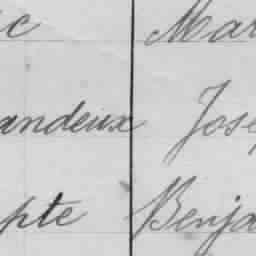 ic Mar
andeux Jose
pte Benja